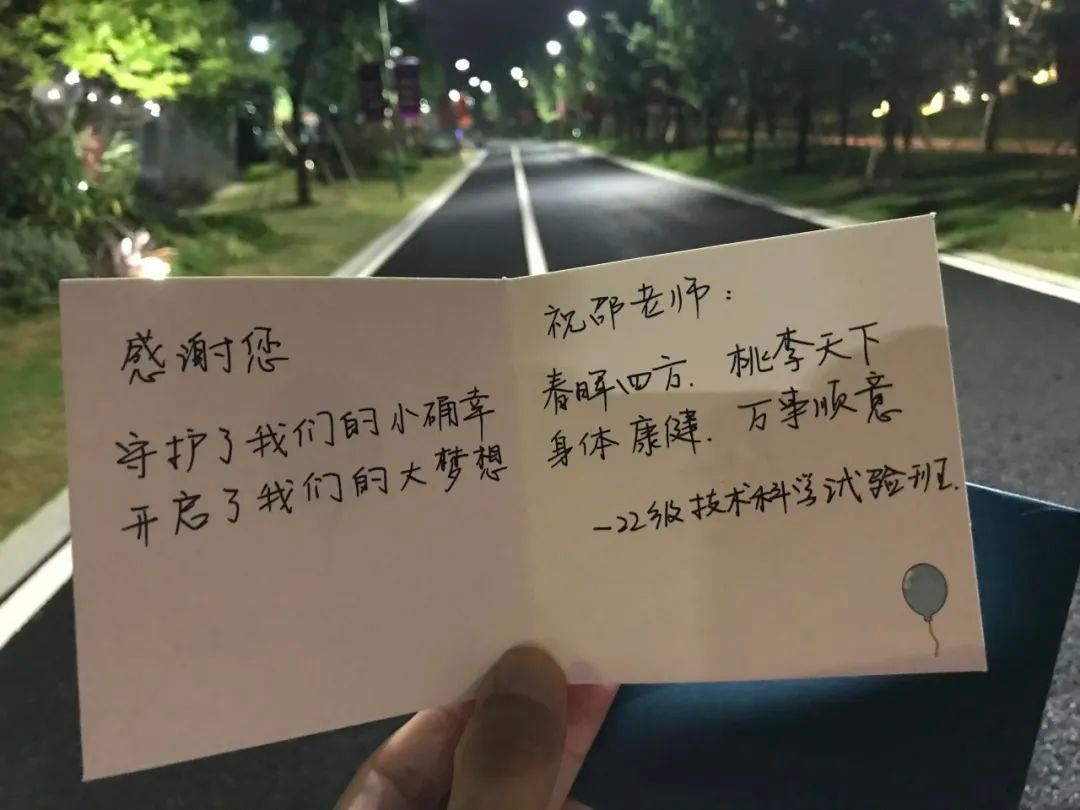 感谢您
守护了我们的小确幸
开启了我们的大梦想
祝邵老师：
春晖四方. 桃李天下
身体康健. 万事顺意
—22级技术科学试验班.